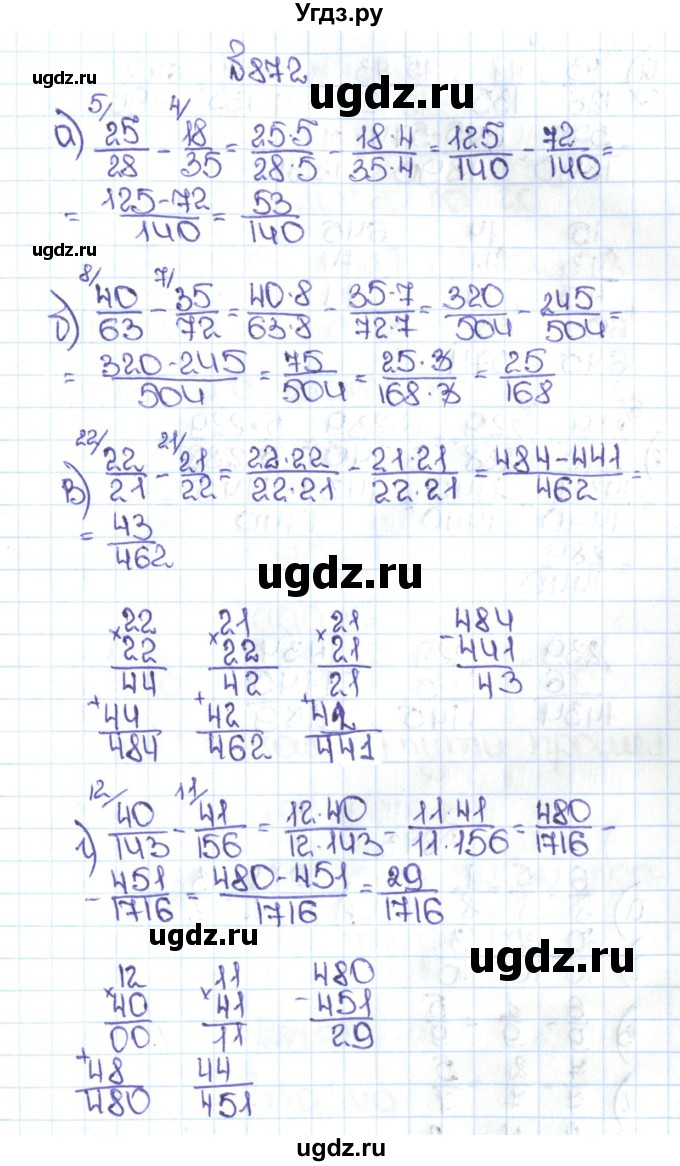 Угдз.ру
№872
ugdz.ru
ugdz.ru
5/ 4/
а) 25/28 - 18/35 = 25·5/28·5 - 18·4/35·4 = 125/140 - 72/140 =
= 125-72/140 = 53/140
ugdz.ru
8/ 7/
б) 40/63 - 35/72 = 40·8/63·8 - 35·7/72·7 = 320/504 - 245/504 =
= 320-245/504 = 75/504 = 25·3/168·3 = 25/168
22/ 21/
в) 22/21 - 21/22 = 22·22/22·21 - 21·21/22·21 = 484-441/462 =
= 43/462
ugdz.ru
22 21 21 484
× 22 × 22 × 21 - 441
44 42 21 43
+ 44 + 42 + 42
484 462 441
12/ 11/
г) 40/143 - 41/156 = 12·40/12·143 - 11·41/11·156 = 480/1716 -
- 451/1716 = 480-451/1716 = 29/1716
ugdz.ru
ugdz.ru
12 11 480
× 40 × 41 - 451
00 11 29
+ 48 44
480 451
ugdz.ru